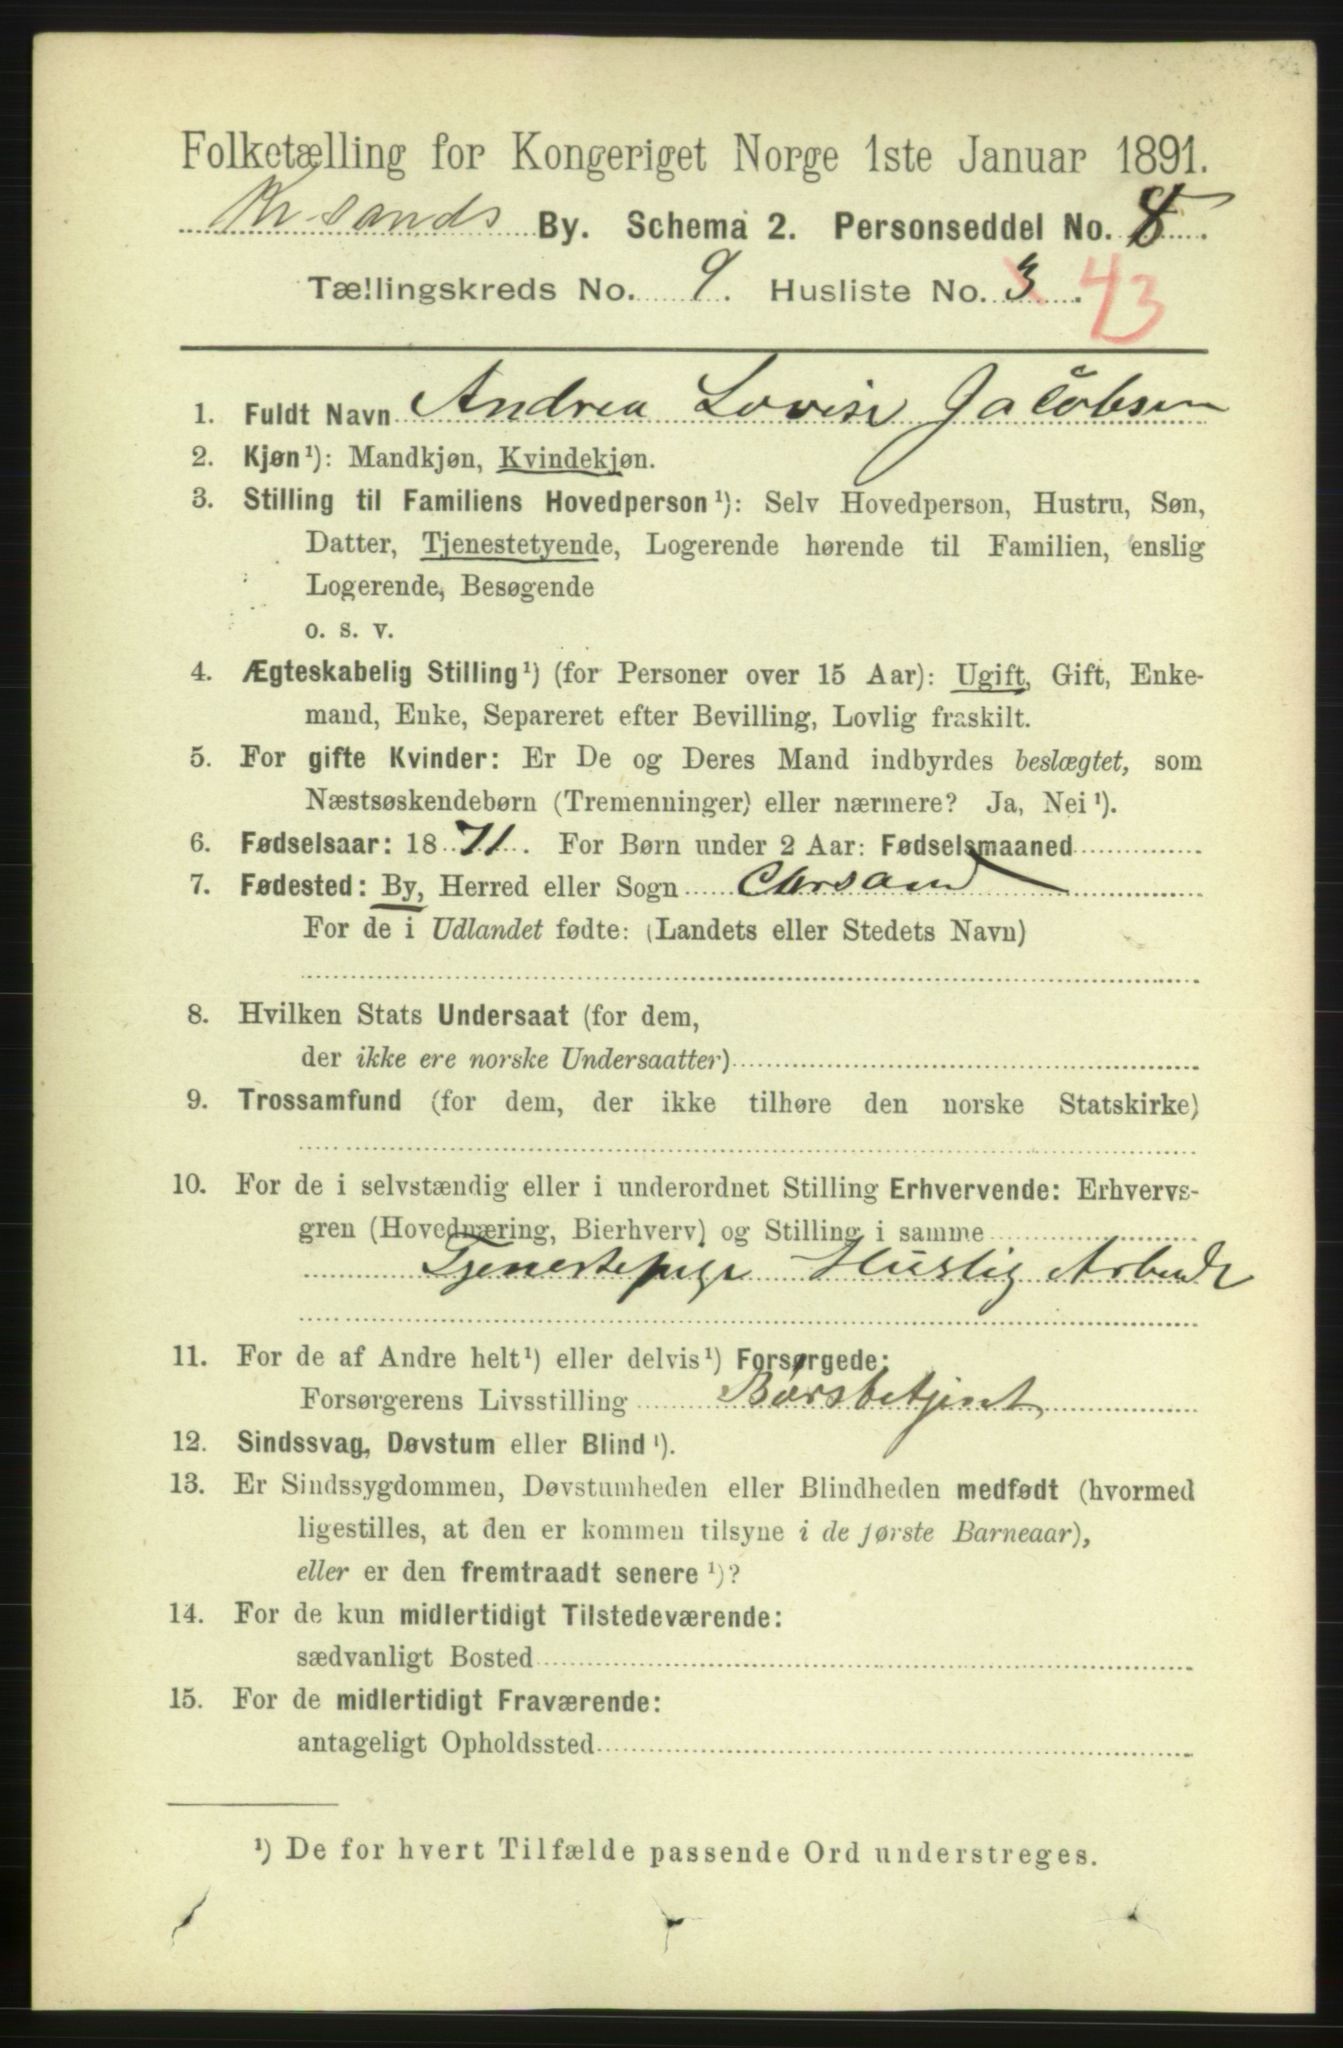 Folketælling for Kongeriget Norge 1ste Januar 1891.
Kr.sands By. Schema 2. Personseddel No. 8.
Tællingskreds No. 9. Husliste No. 3. 43
1. Fuldt Navn Andrea Lovise Jacobsen
2. Kjøn¹): Mandkjøn, Kvindekjøn.
3. Stilling til Familiens Hovedperson¹): Selv Hovedperson, Hustru, Søn,
Datter, Tjenestetyende, Logerende hørende til Familien, enslig
Logerende, Besøgende
o. s. v.
4. Ægteskabelig Stilling¹) (for Personer over 15 Aar): Ugift, Gift, Enke-
mand, Enke, Separeret efter Bevilling, Lovlig fraskilt.
5. For gifte Kvinder: Er De og Deres Mand indbyrdes beslægtet, som
Næstsøskendebørn (Tremenninger) eller nærmere? Ja, Nei¹).
6. Fødselsaar: 1871. For Børn under 2 Aar: Fødselsmaaned
7. Fødested: By, Herred eller Sogn Chrsand
For de i Udlandet fødte: (Landets eller Stedets Navn)
8. Hvilken Stats Undersaat (for dem,
der ikke ere norske Undersaatter)
9. Trossamfund (for dem, der ikke tilhøre den norske Statskirke)
10. For de i selvstændig eller i underordnet Stilling Erhvervende: Erhvervs-
gren (Hovednæring, Bierhverv) og Stilling i samme
Tjenestepige Huslig Arbeide
11. For de af Andre helt¹) eller delvis¹) Forsørgede:
Forsørgerens Livsstilling Børsbetjent
12. Sindssvag, Døvstum eller Blind¹).
13. Er Sindssygdommen, Døvstumheden eller Blindheden medfødt (hvormed
ligestilles, at den er kommen tilsyne i de første Barneaar),
eller er den fremtraadt senere¹)?
14. For de kun midlertidigt Tilstedeværende:
sædvanligt Bosted
15. For de midlertidigt Fraværende:
antageligt Opholdssted
¹) De for hvert Tilfælde passende Ord understreges.